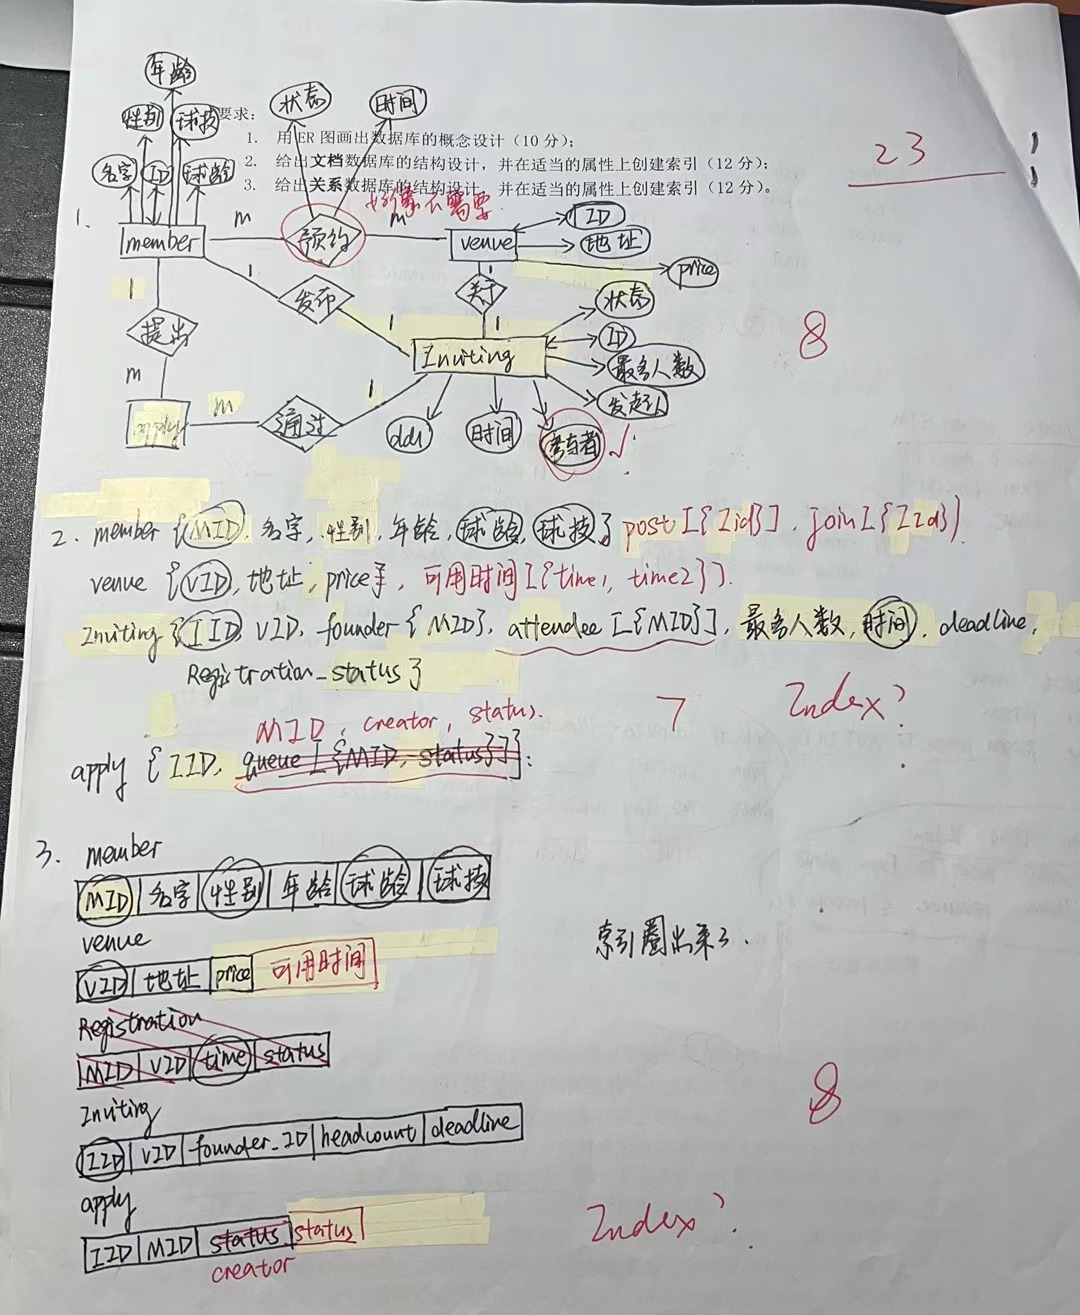 年龄
性别 球技
状态 时间
要求：
1. 用ER图画出数据库的概念设计（10分）；
23
2. 给出文档数据库的结构设计，并在适当的属性上创建索引（12分）；
名字 ID 球龄
3. 给出关系数据库的结构设计，并在适当的属性上创建索引（12分）。
好像不需要
1.
member m 预约 m venue
ID
地址
price
1 1 发布 1 关于 1
状态
提出
Inviting
ID
8
最多人数
m
发起人
apply m 通过 1
ddl 时间 参与者 √
2. member {MID, 名字, 性别, 年龄, 球龄, 球技} post[{Iid}], join[{Iid}]
venue {VID, 地址, price}, 可用时间[{time1, time2}].
Inviting {IID, VID, founder{MID}, attendee[{MID}], 最多人数, 时间, deadline,
Registration_status}
7 Index?
MID, creator, status.
apply {IID, queue[{MID, status}]};
3. member
MID 名字 性别 年龄 球龄 球技
venue
索引圈出来了.
VID 地址 price 可用时间
Registration
MID VID time status
Inviting
8
IID VID founder_ID headcount deadline
apply
IID MID status status
Index?
creator